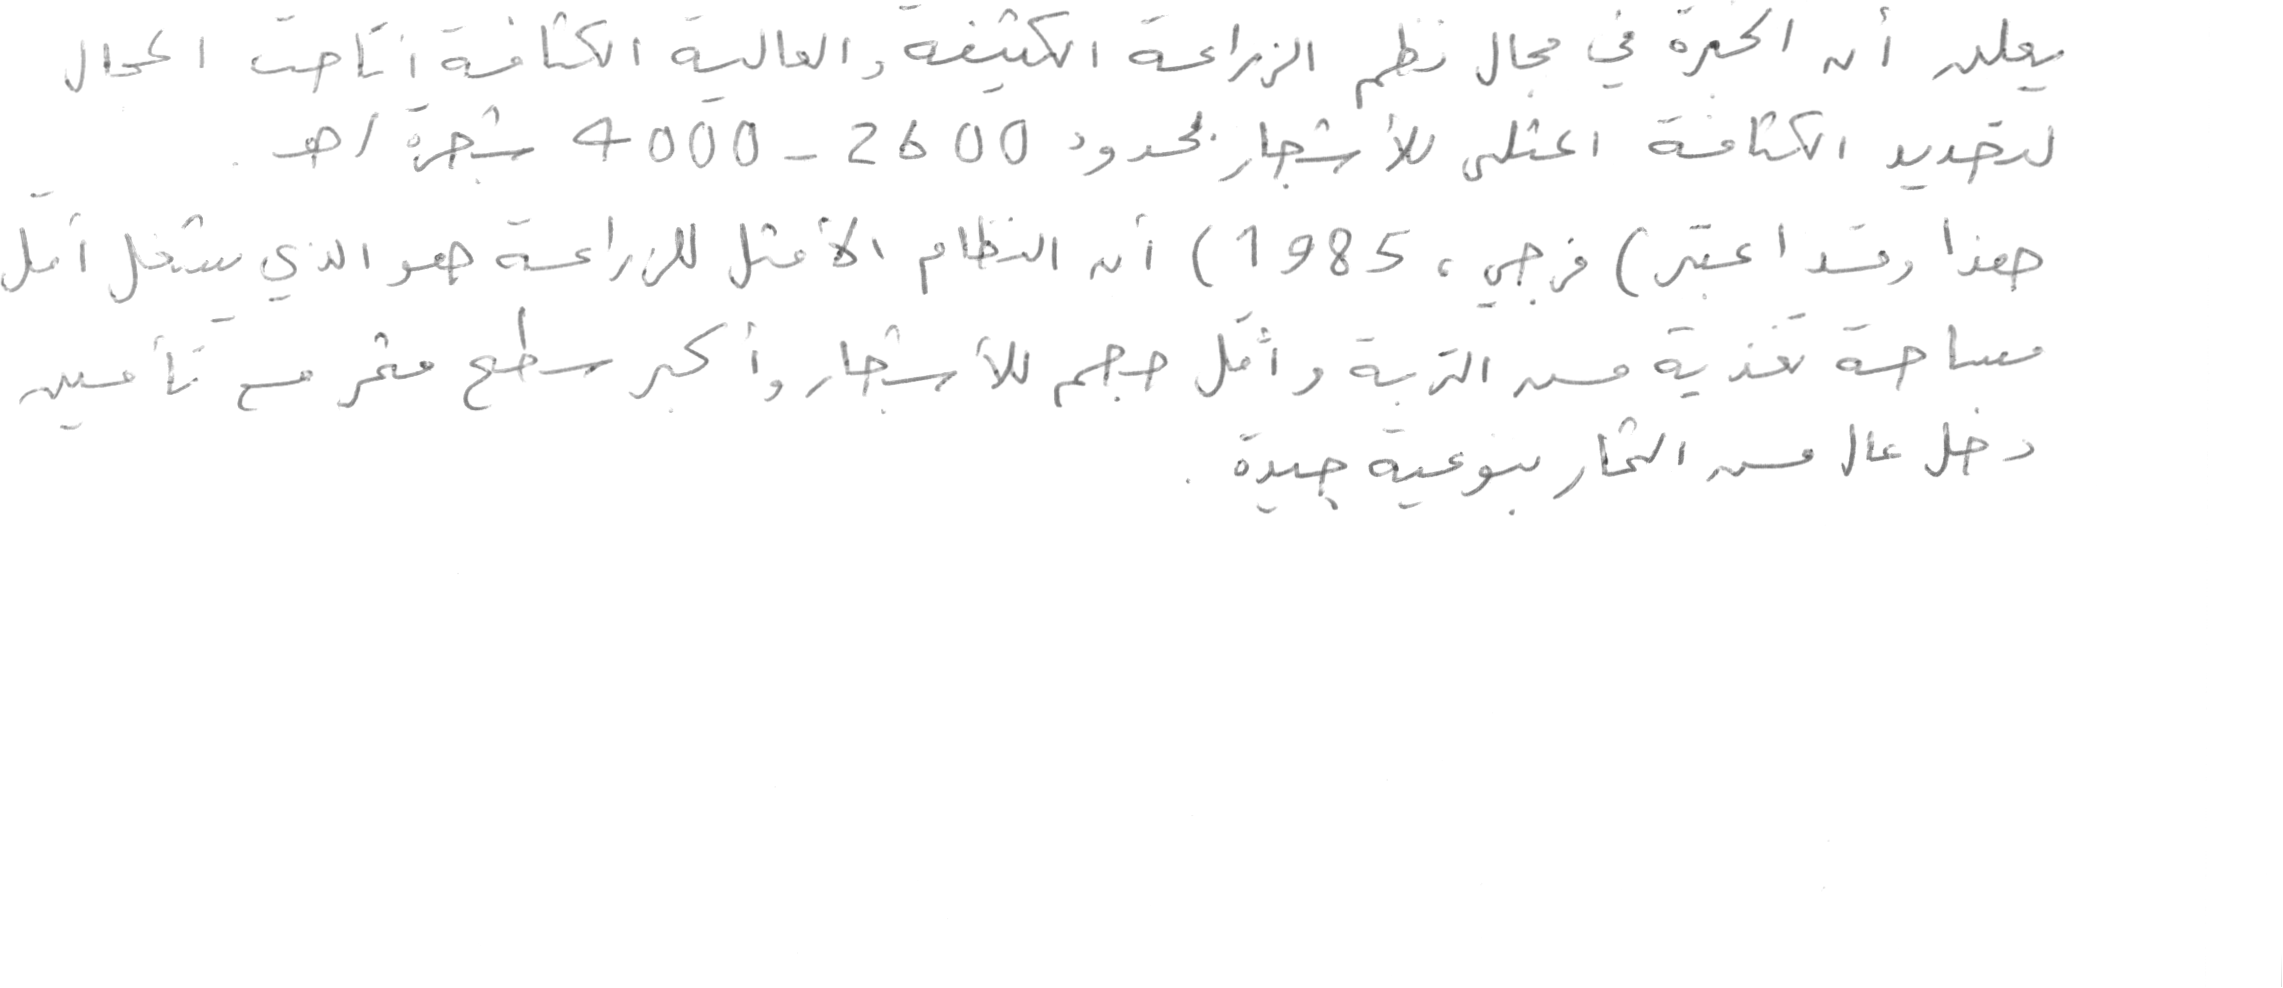 يعلن أن الخبرة في مجال نظم الزراعة الكثيفة والعالية الكثافة اتاحت المجال
لتحديد الكثافة المثلى للأشجار بحدود 2600 - 4000 شجرة / هـ .
هذا وقد اعتبر ( فرجي ، 1985 ) أن النظام الأمثل للزراعة هو الذي يشغل أقل
مساحة تغذية من التربة وأقل حجم للأشجار وأكبر سطح مثمر مع تأمين
دخل عال من الثمار بنوعية جيدة .